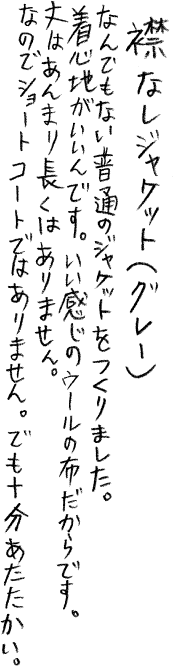 襟なしジャケット(グレー)
なんでもない普通のジャケットをつくりました。
着心地がいいんです。いい感じのウールの布だからです。
丈はあんまり長くはありません。
なのでショートコートではありません。でも十分あたたかい。